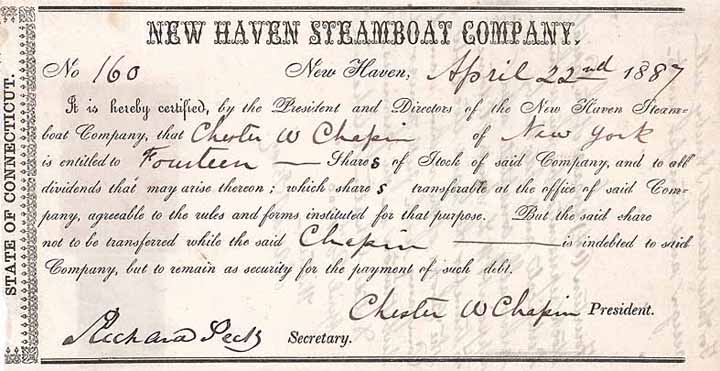 NEW HAVEN STEAMBOAT COMPANY.
No 160 New Haven, April 22nd 1887
It is hereby certified, by the President and Directors of the New Haven Steam-
boat Company, that Chester W Chapin of New York
is entitled to Fourteen — Shares of Stock of said Company, and to all
dividends that may arise thereon; which shares transferable at the office of said Com-
pany, agreeable to the rules and forms instituted for that purpose. But the said share
not to be transferred while the said Chapin — is indebted to said
Company, but to remain as security for the payment of such debt.
Chester W Chapin President.
Richard Peck Secretary.
STATE OF CONNECTICUT.